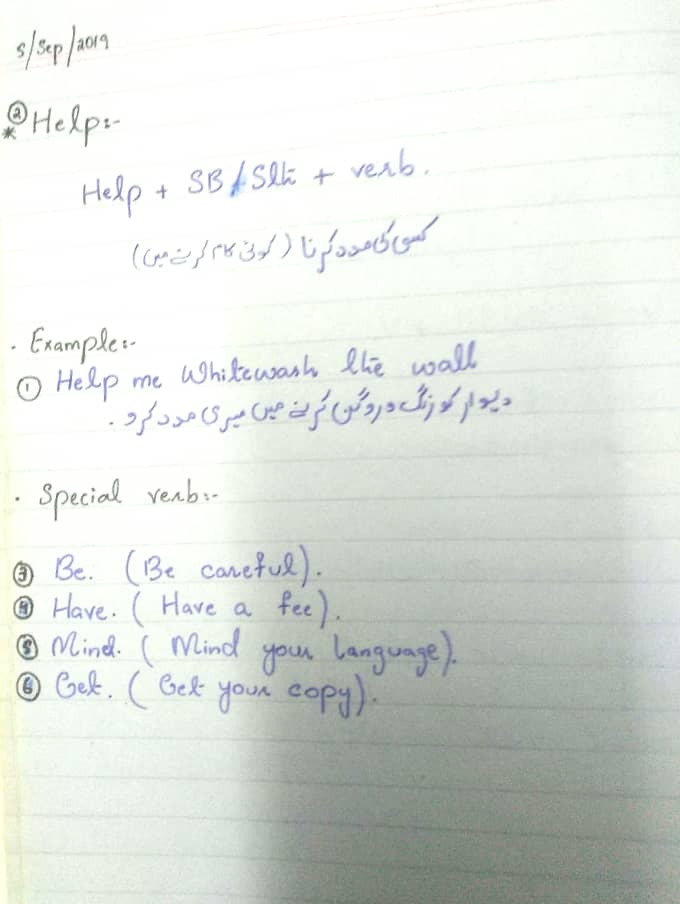 5/Sep/2019
② * Help:-
Help + SB / Sth + verb.
کسی کی مدد کرنا (کوئی کام کرنے میں)
. Example:-
① Help me Whitewash the wall
دیوار کو رنگ و روگن کرنے میں میری مدد کرو .
. Special verb:-
③ Be. (Be careful).
④ Have. ( Have a fee).
⑤ Mind. ( Mind your language).
⑥ Get. ( Get your copy).